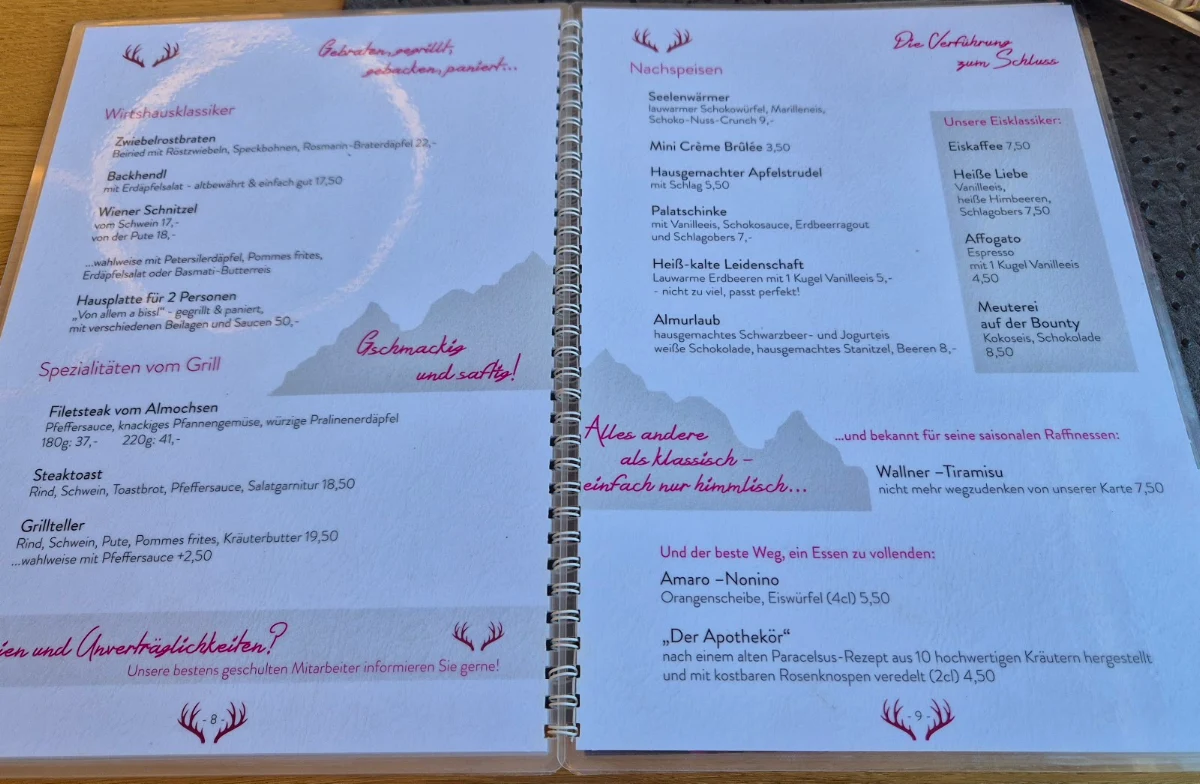 Gebraten, gegrillt,
gebacken, paniert...
Wirtshausklassiker
Zwiebelrostbraten
Beiried mit Röstzwiebeln, Speckbohnen, Rosmarin-Braterdäpfel 22,-
Backhendl
mit Erdäpfelsalat - altbewährt & einfach gut 17,50
Wiener Schnitzel
vom Schwein 17,-
von der Pute 18,-
...wahlweise mit Petersilerdäpfel, Pommes frites,
Erdäpfelsalat oder Basmati-Butterreis
Hausplatte für 2 Personen
„Von allem a bissl" - gegrillt & paniert,
mit verschiedenen Beilagen und Saucen 50,-
Gschmackig
und saftig!
Spezialitäten vom Grill
Filetsteak vom Almochsen
Pfeffersauce, knackiges Pfannengemüse, würzige Pralinenerdäpfel
180g: 37,- 220g: 41,-
Steaktoast
Rind, Schwein, Toastbrot, Pfeffersauce, Salatgarnitur 18,50
Grillteller
Rind, Schwein, Pute, Pommes frites, Kräuterbutter 19,50
...wahlweise mit Pfeffersauce +2,50
ien und Unverträglichkeiten?
Unsere bestens geschulten Mitarbeiter informieren Sie gerne!
- 8 -
Die Verführung
zum Schluss
Nachspeisen
Seelenwärmer
lauwarmer Schokowürfel, Marilleneis,
Schoko-Nuss-Crunch 9,-
Mini Crème Brûlée 3,50
Hausgemachter Apfelstrudel
mit Schlag 5,50
Palatschinke
mit Vanilleeis, Schokosauce, Erdbeerragout
und Schlagobers 7,-
Heiß-kalte Leidenschaft
Lauwarme Erdbeeren mit 1 Kugel Vanilleeis 5,-
- nicht zu viel, passt perfekt!
Almurlaub
hausgemachtes Schwarzbeer- und Jogurteis
weiße Schokolade, hausgemachtes Stanitzel, Beeren 8,-
Unsere Eisklassiker:
Eiskaffee 7,50
Heiße Liebe
Vanilleeis,
heiße Himbeeren,
Schlagobers 7,50
Affogato
Espresso
mit 1 Kugel Vanilleeis
4,50
Meuterei
auf der Bounty
Kokoseis, Schokolade
8,50
Alles andere
als klassisch -
einfach nur himmlisch...
...und bekannt für seine saisonalen Raffinessen:
Wallner -Tiramisu
nicht mehr wegzudenken von unserer Karte 7,50
Und der beste Weg, ein Essen zu vollenden:
Amaro -Nonino
Orangenscheibe, Eiswürfel (4cl) 5,50
„Der Apothekör"
nach einem alten Paracelsus-Rezept aus 10 hochwertigen Kräutern hergestellt
und mit kostbaren Rosenknospen veredelt (2cl) 4,50
- 9 -